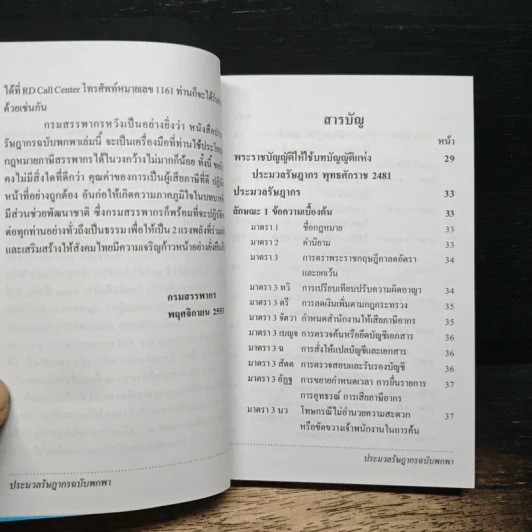 ได้ที่ RD Call Center โทรศัพท์หมายเลข 1161 ท่านก็จะได้รับ
ด้วยเช่นกัน
กรมสรรพากรหวังเป็นอย่างยิ่งว่า หนังสือ
รัษฎากรฉบับพกพาเล่มนี้ จะเป็นเครื่องมือที่ท่านใช้
กฎหมายภาษีสรรพากรได้ในวงกว้างไม่มากก็น้อย ทั้งนี้
คงไม่มีสิ่งใดที่ดีกว่า คุณค่าของการเป็นผู้เสียภาษีที่ดี
หน้าที่อย่างถูกต้อง อันก่อให้เกิดความภาคภูมิใจ
มีส่วนช่วยพัฒนาชาติ ซึ่งกรมสรรพากรก็พร้อมที่จะ
ต่อทุกท่านอย่างทั่วถึงเป็นธรรม เพื่อให้เป็น 2 แรงพลังที่
และเสริมสร้างให้สังคมไทยมีความเจริญก้าวหน้าอย่าง
กรมสรรพากร
พฤศจิกายน 255
ประมวลรัษฎากรฉบับพกพา
สารบัญ
หน้า
พระราชบัญญัติให้ใช้บทบัญญัติแห่ง 29
ประมวลรัษฎากร พุทธศักราช 2481
ประมวลรัษฎากร 33
ลักษณะ 1 ข้อความเบื้องต้น 33
มาตรา 1 ชื่อกฎหมาย 33
มาตรา 2 คำนิยาม 33
มาตรา 3 การตราพระราชกฤษฎีกาลดอัตรา 34
และยกเว้น
มาตรา 3 ทวิ การเปรียบเทียบปรับความผิดอาญา 34
มาตรา 3 ตรี การลดเงินเพิ่มตามกฎกระทรวง 35
มาตรา 3 จัตวา กำหนดสำนักงานให้เสียภาษีอากร 35
มาตรา 3 เบญจ การตรวจค้นหรือยึดบัญชีเอกสาร 36
มาตรา 3 ฉ การสั่งให้แปลบัญชีและเอกสาร 36
มาตรา 3 สัตต การตรวจสอบและรับรองบัญชี 36
มาตรา 3 อัฏฐ การขยายกำหนดเวลา การยื่นรายการ 37
การอุทธรณ์ การเสียภาษีอากร
มาตรา 3 นว โทษกรณีไม่อำนวยความสะดวก 37
หรือขัดขวางเจ้าพนักงานในการค้น
ประมวลรัษฎากรฉบับพกพา